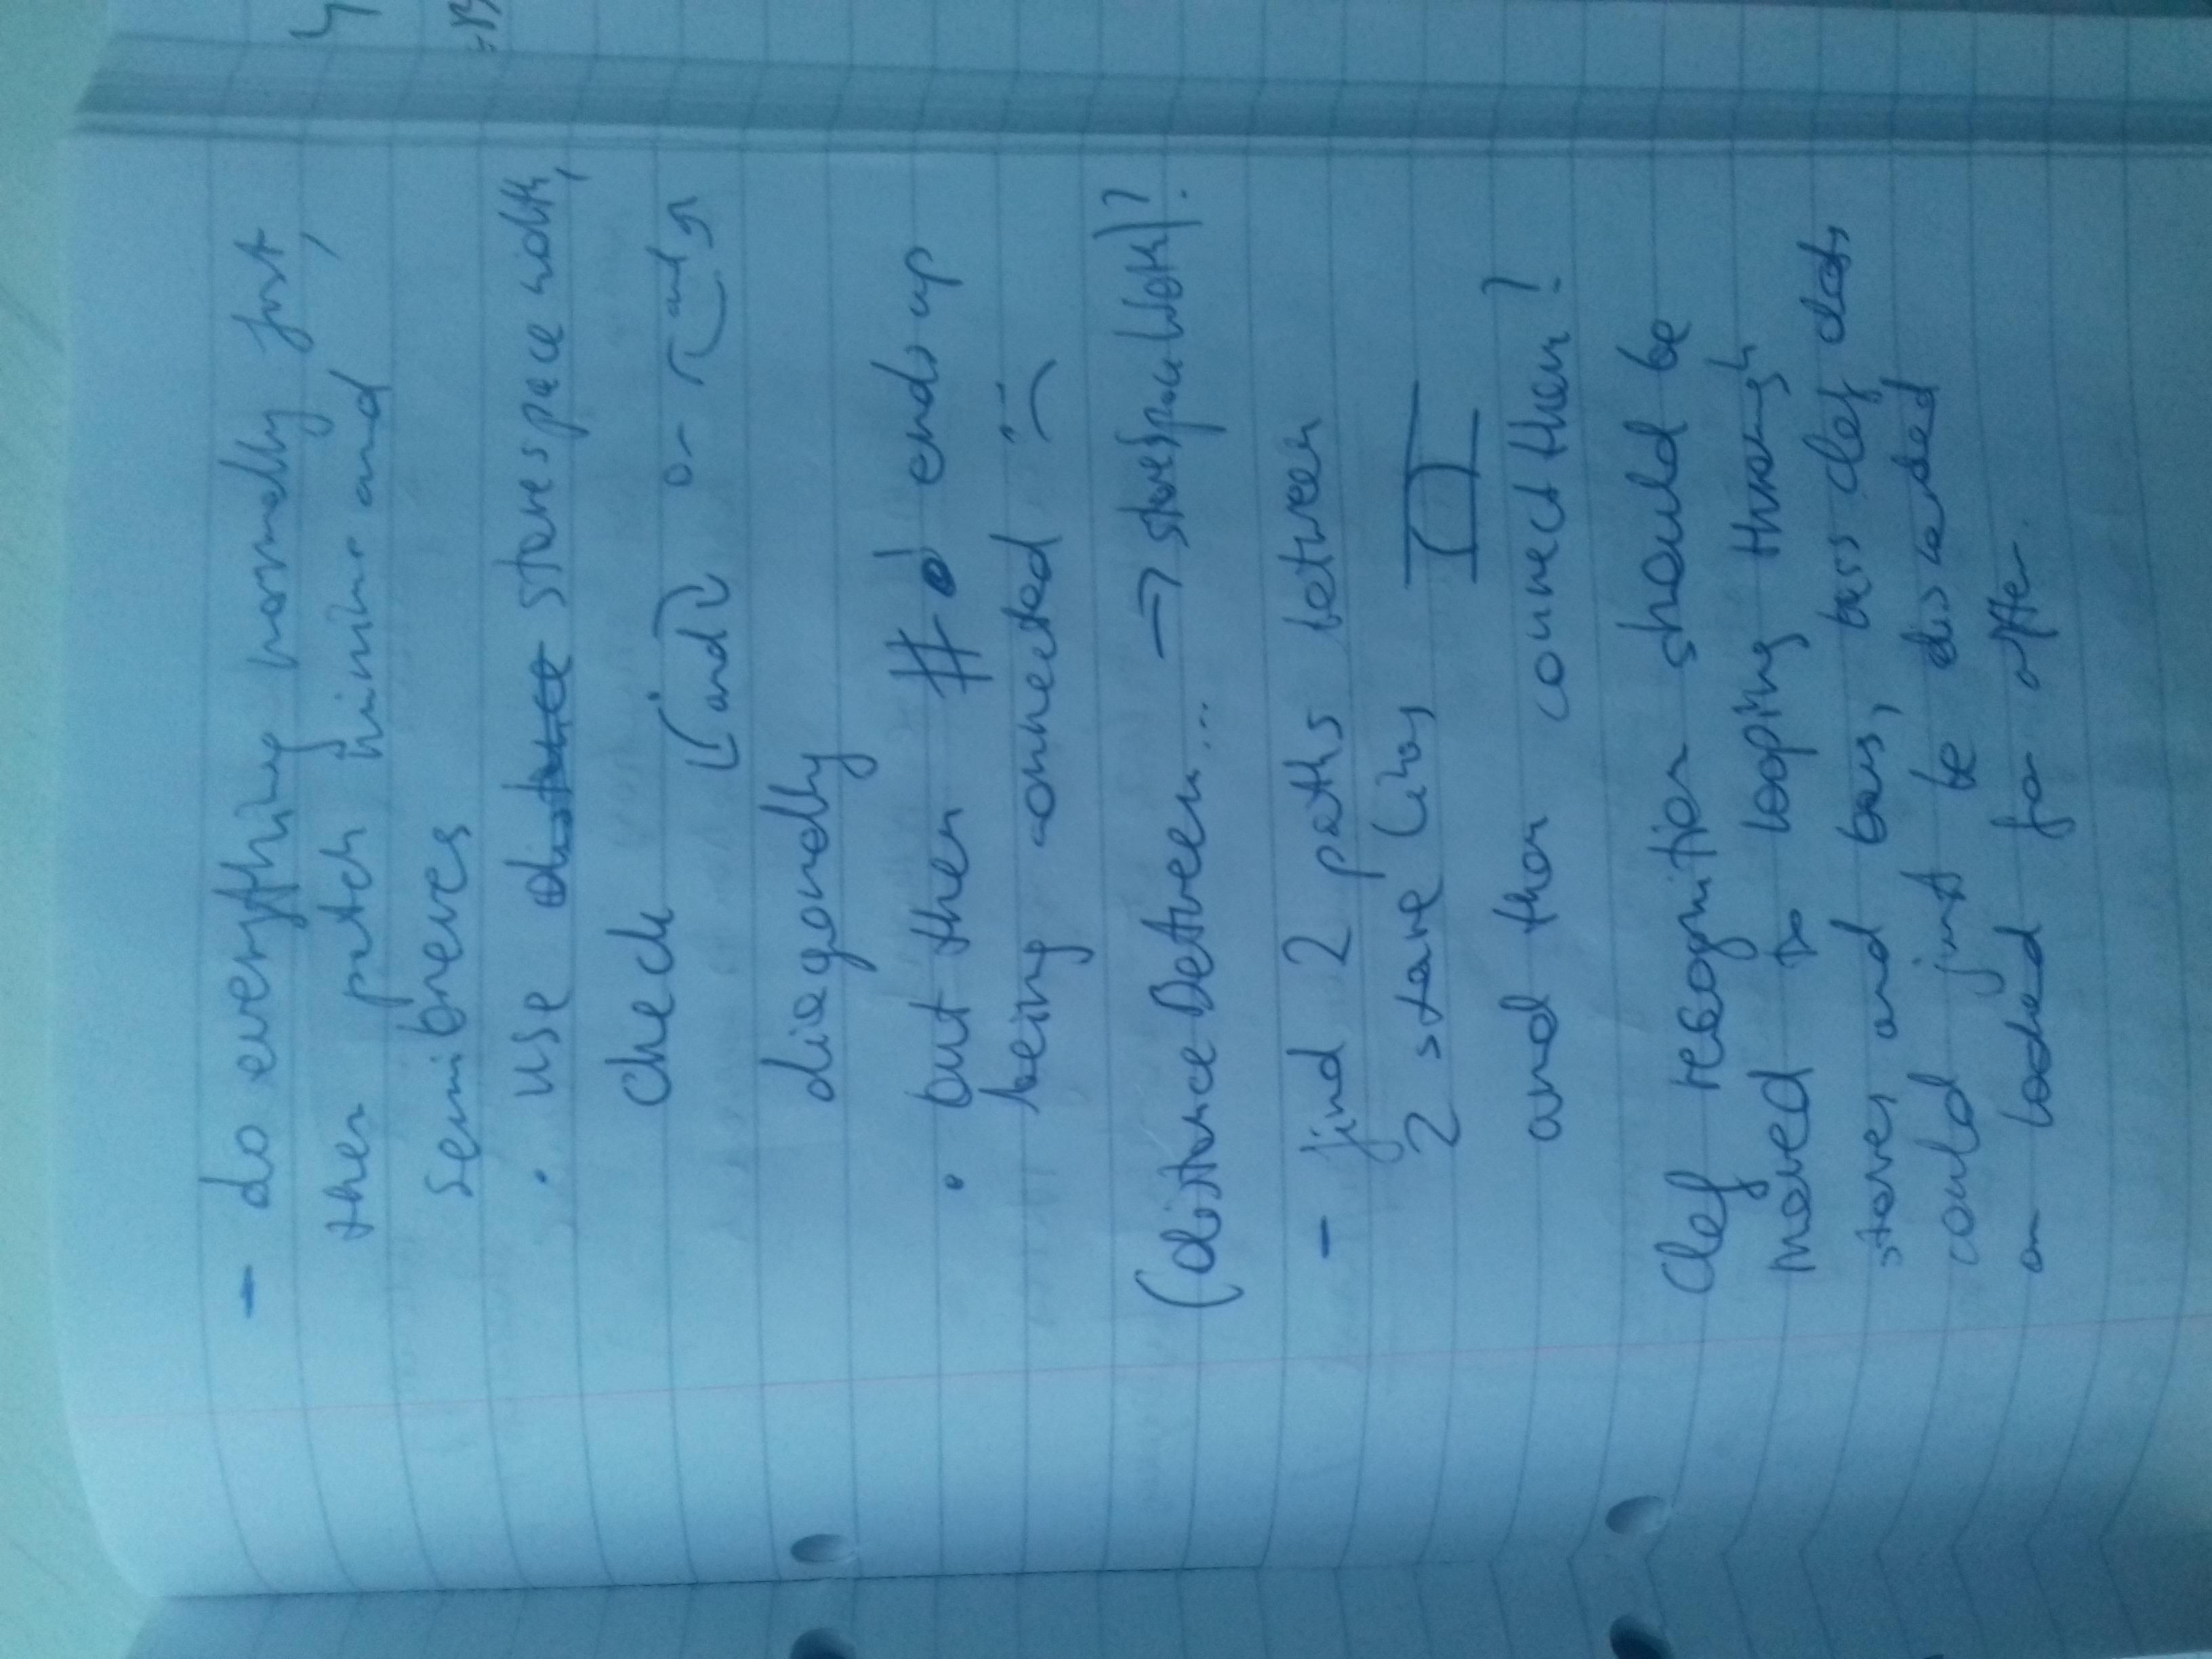 - do everything normally first,
then patch minims and
semibreves
· use distance stavespace width,
check
(and) or and
diagonally
· but then # ends up
being connected :(
(distanceBetween... → staveSpaceWidth)?
- find 2 paths between
2 stave lines
and then connect them?
Clef recognition should be
moved to looping through
staves and bars, bass clef dots
could just be discarded
or looked for after.